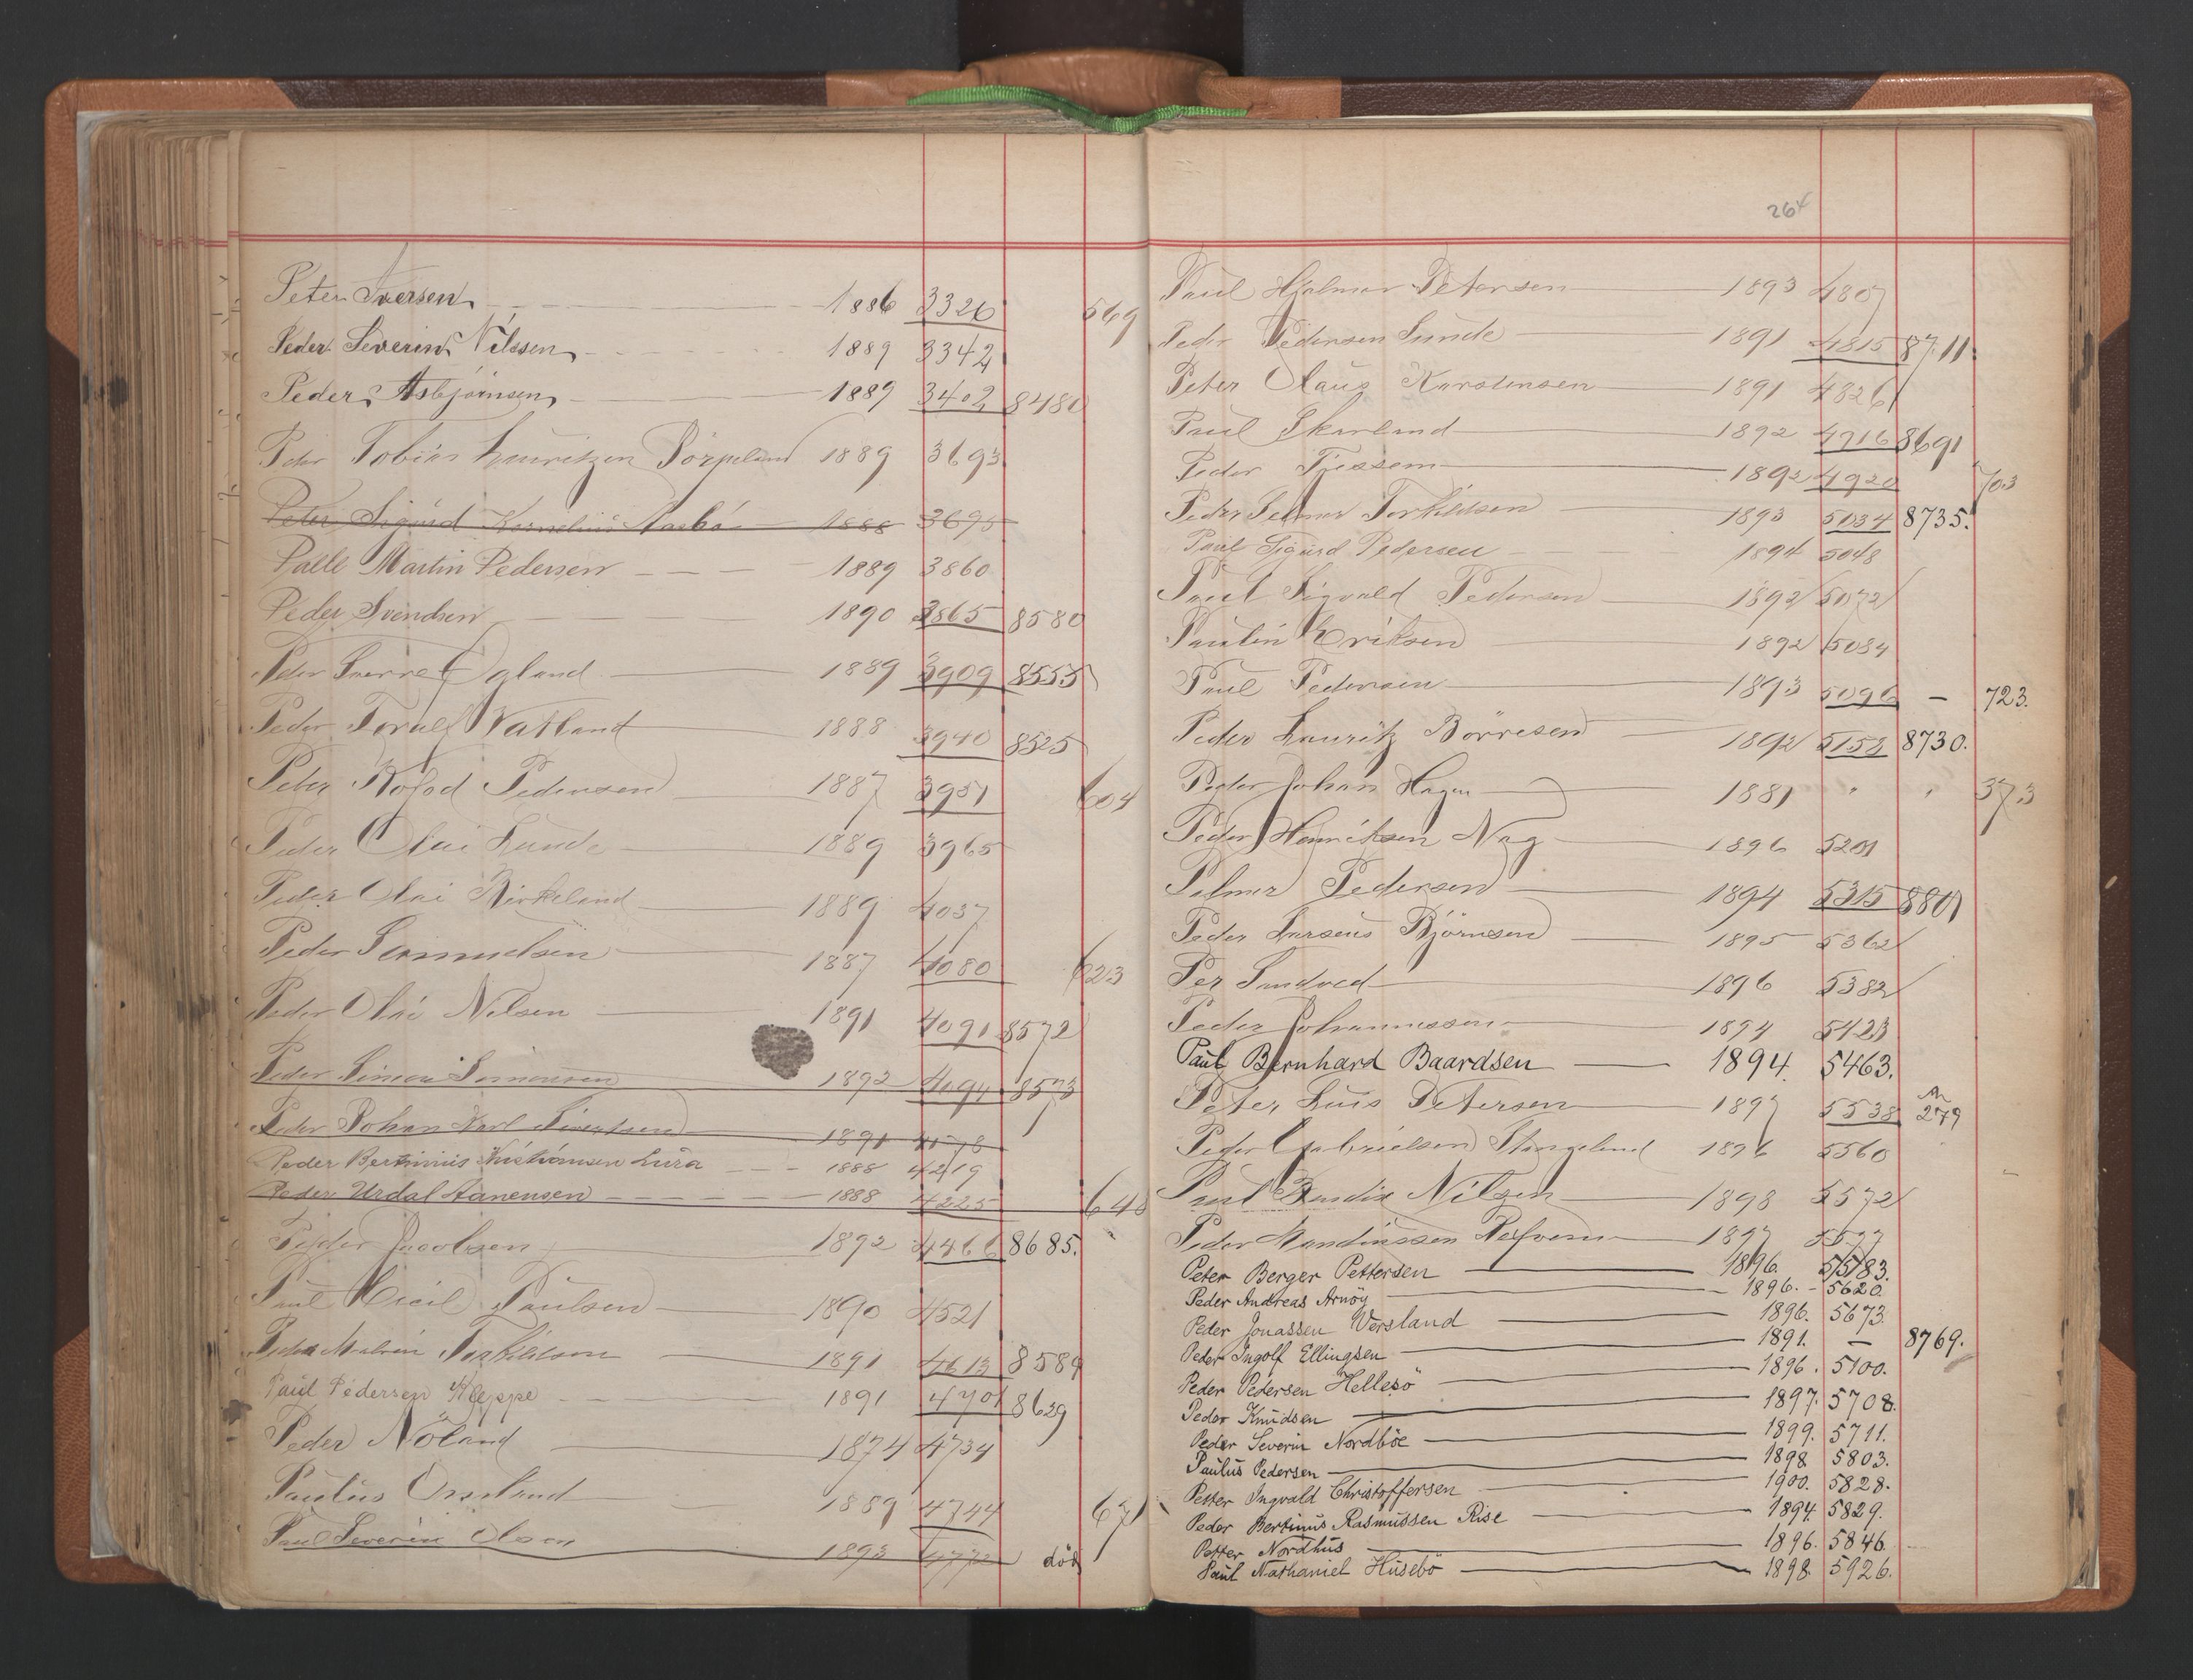 Peter Iversen 1886 3326 569
Peder Severin Nilssen 1889 3342
Peder Asbjörnsen 1889 3402 8480
Peder Tobias Lauritzen Jörpeland 1889 3693
Peter Sigurd Kornelius Aasbö 1888 3695
Palle Martin Pedersen 1889 3860
Peder Svendsen 1890 3865 8580
Peder Sverre Ogland 1889 3909 8555
Peder Toralf Watland 1888 3940 8525
Peter Rolod Pedersen 1887 3951 604
Peder Olai Lunde 1889 3965
Peder Olai Birkeland 1889 4037
Peder Samuelsen 1887 4080 623
Peder Olai Nilsen 1891 4091 8572
Peder Simon Simonsen 1892 4094 8573
Peder Johan Karl Sivertsen 1891 4178
Peder Bertinius Kristiansen Lura 1888 4219
Peder Urdal Aanensen 1888 4225 640
Peder Jacobsen 1892 4466 8685.
Paul Paulsen 1890 4521
Peder Malvin Torkildsen 1891 4613 8589
Paul Pedersen Kleppe 1891 4701 8629
Peder Nöland 1874 4734
Paulus Orseland 1889 4744 671
Paul Severin Olsen 1893 4772 död
264
Paul Hjalmar Petersen 1893 4807
Peder Pedersen Sunde 1891 4815 8711.
Peter Olaus Karstensen 1891 4826
Paul Skarland 1892 4716 8691
Peder Tjessem 1892 4920 703
Peder Selmer Torkildsen 1893 5034 8735.
Paul Sigurd Pedersen 1894 5048
Paul Sigvald Pedersen 1892 5072
Paulin Eriksen 1892 5084
Paul Pedersen 1893 5096 — 723.
Peder Lauritz Börresen 1892 5153 8730.
Peder Johan Hagen 1881 " " 373
Peder Henriksen Nag 1896 5201
Pelmer Pedersen 1894 5315 8801
Peder Larseus Björnsen 1895 5362
Per Sandved 1896 5382
Peder Johannessen 1894 5423
Paul Bernhard Baardsen 1894. 5463.
Peter Luis Petersen 1897 5538 279
Peder Gabrielsen Stangeland 1896 5560
Paul Bendix Nilsen 1898 5572
Peder Mandiussen 1897 5577
Peter Berger Pettersen 1896. 5583.
Peder Andreas Arnöy 1896. 5620.
Peder Jonassen Versland 1896. 5673.
Peder Ingolf Ellingsen 1891. — 8769.
Peder Pedersen Hellesö 1896. 5100.
Peder Knudsen 1897. 5708.
Peder Severin Nordböe 1899. 5711.
Paulus Pedersen 1898 5803.
Petter Ingvald Christoffersen 1900. 5828.
Peder Bertinus Rasmussen Rise 1894. 5829.
Petter Nordhus 1896. 5846.
Paul Nathaniel Husebö 1898. 5926.